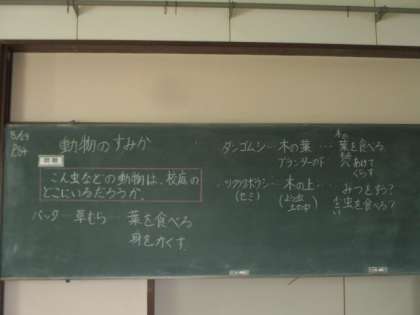 8/29
P.54
動物のすみか
問題
こん虫などの動物は、校庭の
どこにいるだろうか。
バッタ 草むら… 葉を食べる
身をかくす
ダンゴムシ… 木の葉 … 葉を食べる
プランターの下 穴あけて
くらす
ツクツクボウシ… 木の上… みつをすう?
(セミ) 虫を食べる?